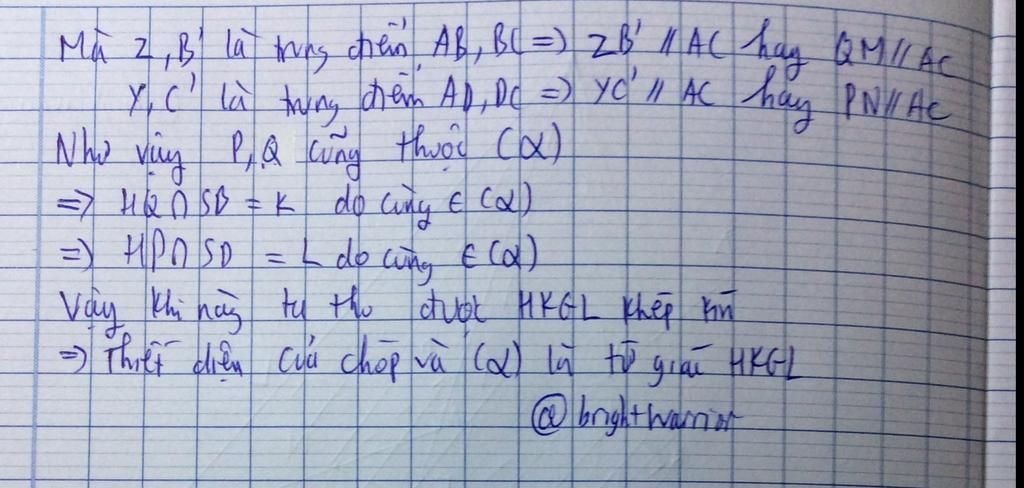 Mà Z, B' là trung điểm AB, BC => ZB' // AC hay QM // AC
Y, C' là trung điểm AD, DC => YC' // AC hay PN // AC
Như vậy P, Q cũng thuộc (α)
=> HQ ∩ SB = K do cùng ∈ (α)
=> HP ∩ SD = L do cùng ∈ (α)
Vậy khi này ta thu được HKGL khép kín
=> Thiết diện của chóp và (α) là tứ giác HKGL
@brightwarrior